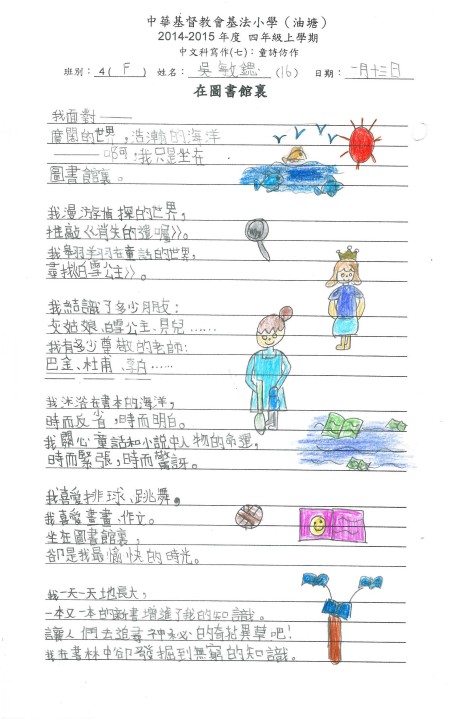 中華基督教會基法小學（油塘）
2014-2015 年度 四年級上學期
中文科寫作(七)：童詩仿作
班別：4( F ) 姓名：吳敏鎴 (16) 日期：一月十三日
在圖書館裏
我面對——
廣闊的世界，浩瀚的海洋
——啊，我只是坐在
圖書館裏。
我漫游偵探的世界，
推敲《消失的    》。
我翱翔在童話的世界，
尋找《白雪公主》。
我結識了多少朋友：
灰姑娘、白雪公主、貝兒……
我有多少尊敬的老師：
巴金、杜甫、李白……
我沐浴在書本的海洋，
時而反省，時而明白。
我關心童話和小說中人物的命運，
時而緊張，時而驚訝。
我喜愛排球、跳舞，
我喜愛畫畫、作文。
坐在圖書館裏，
卻是我最愉快的時光。
我一天一天地長大，
一本又一本的新書增進了我的知識。
讓人們去追尋神祕的奇拈異草吧！
我在書林中卻發掘到無窮的知識。